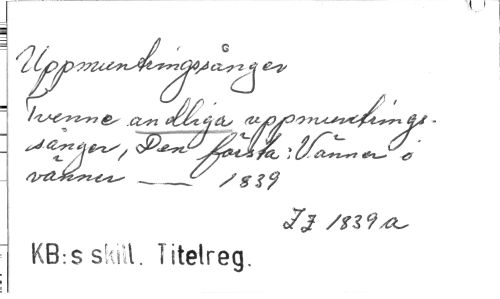 Uppmuntringssånger
Tvenne andliga uppmuntrings-
sånger, Den första: Vänner o
vänner — 1839
ZZ 1839 a
KB:s skill. Titelreg.